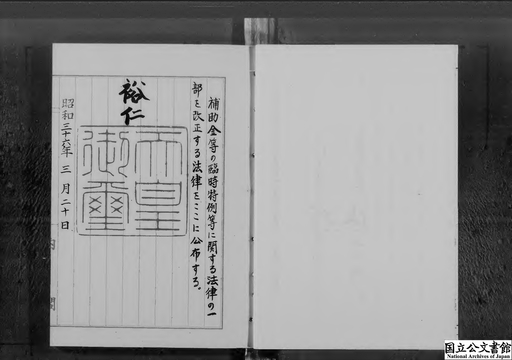 補助金等の臨時特例等に関する法律の一
部を改正する法律をここに公布する。
裕仁
天皇
御璽
昭和三十六年三月二十日
内閣
国立公文書館
National Archives of Japan